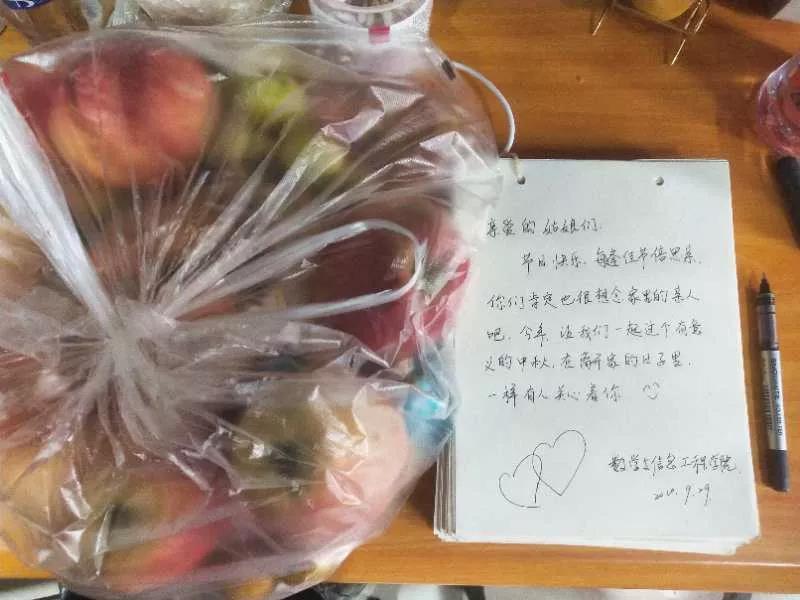 亲爱的姑娘们:
节日快乐。每逢佳节倍思亲,
你们肯定也很想念家里的亲人
吧。今年,让我们一起过个有意
义的中秋,在离开家的日子里,
一样有人关心着你
数学与信息工程学院
9.29